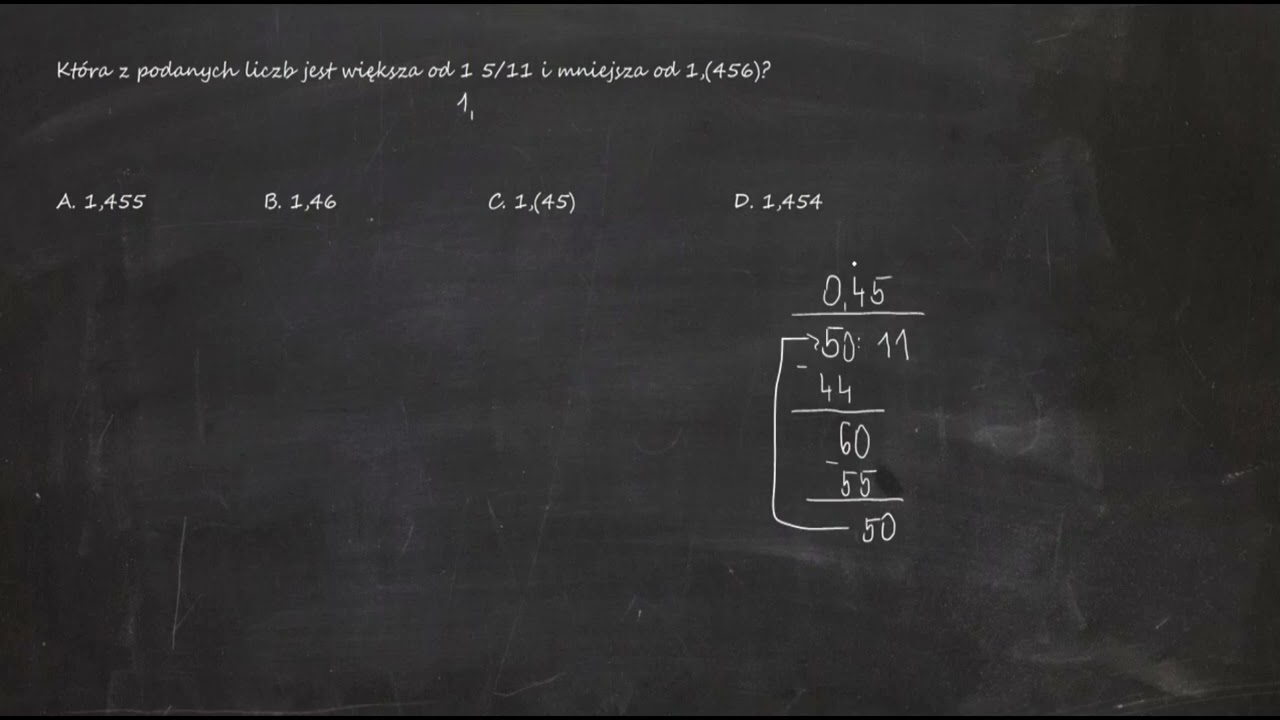 Która z podanych liczb jest większa od 1 5/11 i mniejsza od 1,(456)?
1,
A. 1,455 B. 1,46 C. 1,(45) D. 1,454
0,45
50: 11
- 44
60
- 55
50